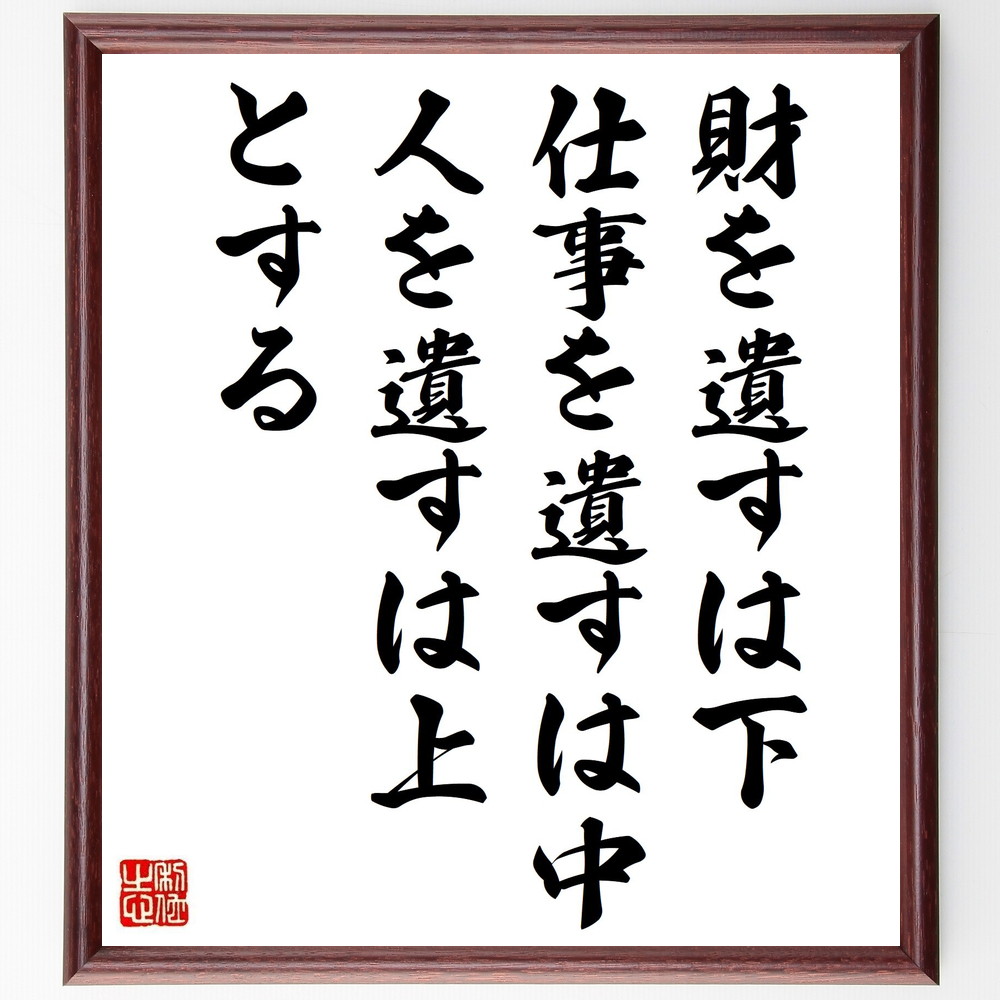 財を遺すは下
仕事を遺すは中
人を遺すは上
とする